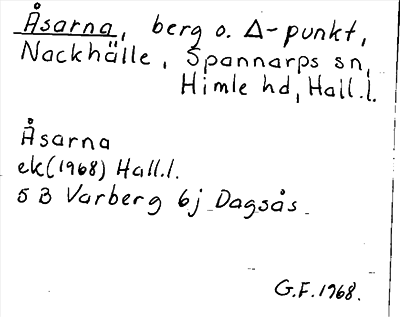 Åsarna, berg o. Δ-punkt,
Nackhälle, Spannarps sn,
Himle hd, Hall.l.
Åsarna
ek(1968) Hall.l.
5 B Varberg 6j Dagsås
G.F. 1968.